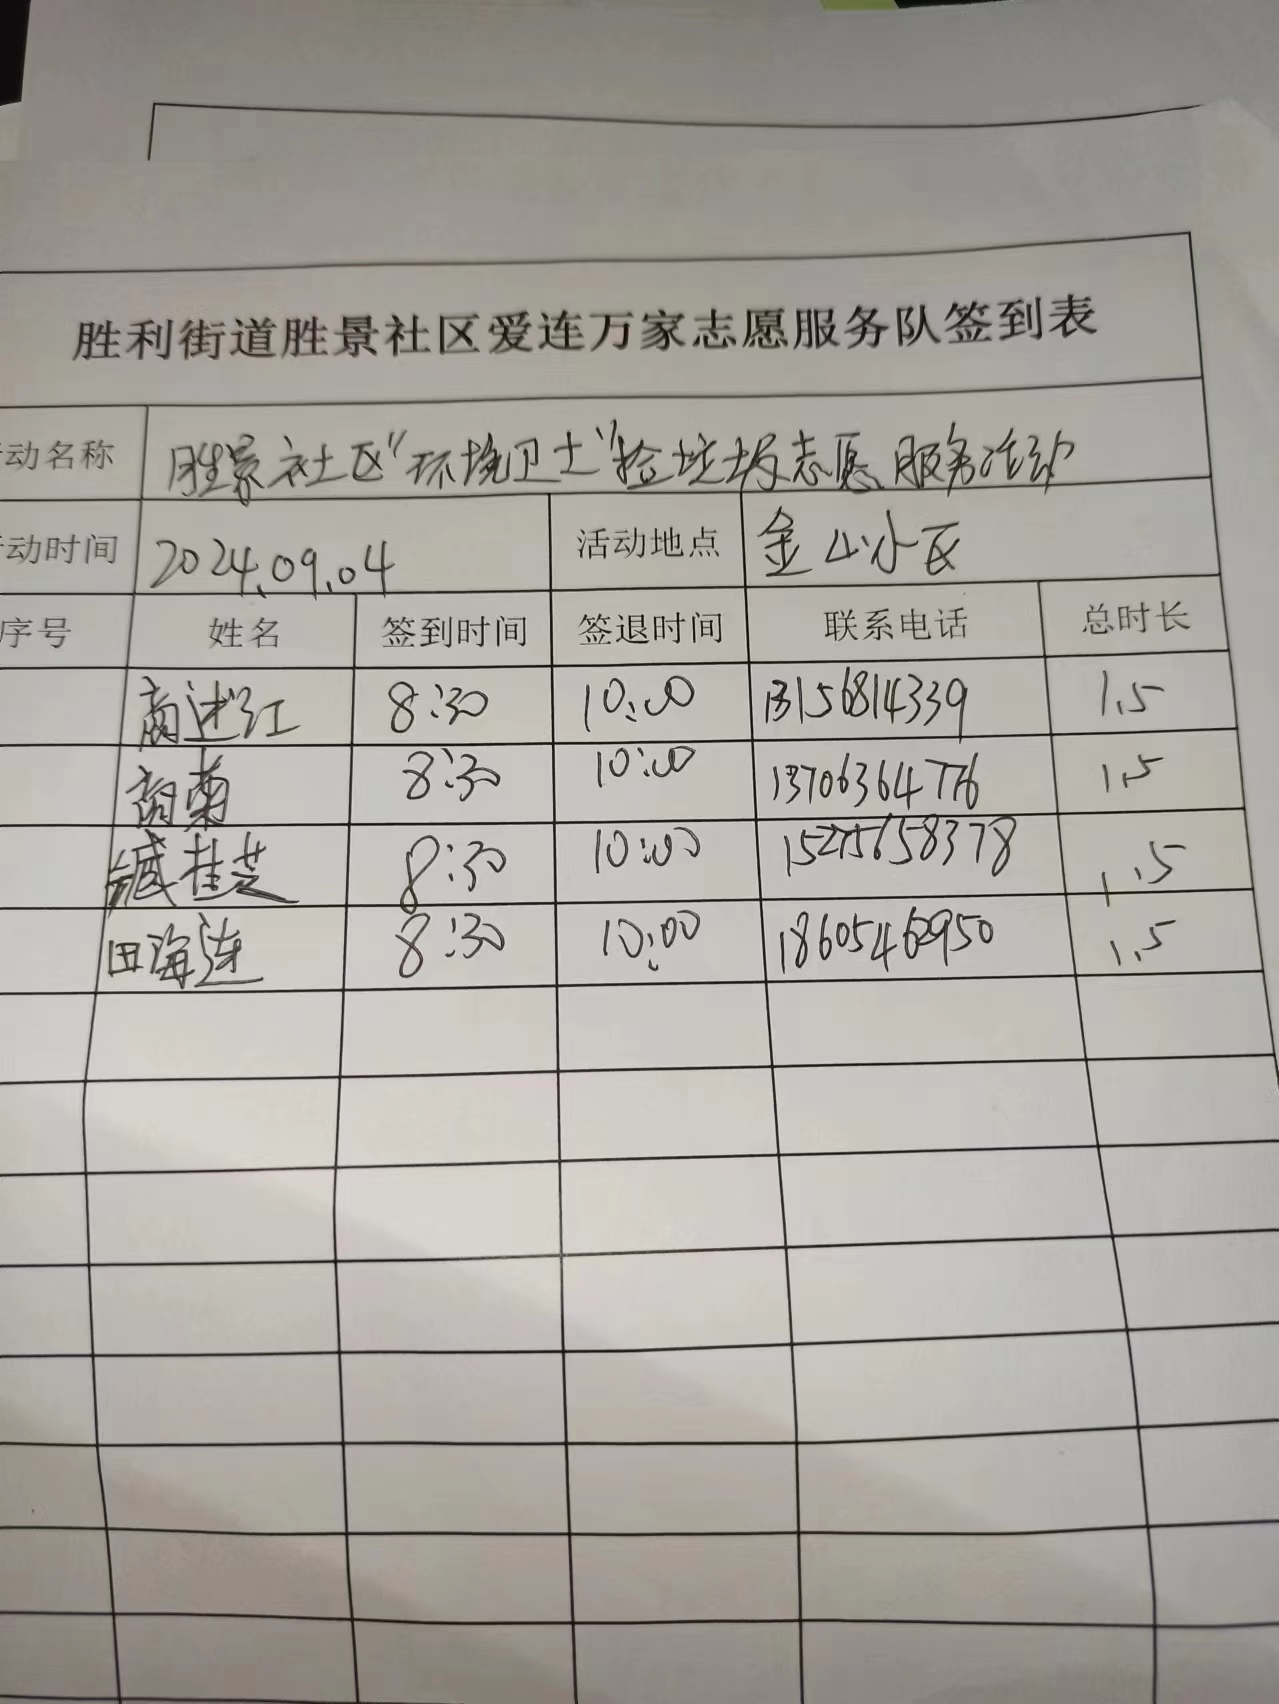 胜利街道胜景社区爱连万家志愿服务队签到表
动名称 胜景社区“环境卫士”捡垃圾志愿服务活动
动时间 2024.09.04 活动地点 金山小区
序号 姓名 签到时间 签退时间 联系电话 总时长
商述江 8:30 10:00 13156814339 1.5
8:30 10:00 13706364776 1.5
臧桂芝 8:30 10:00 15275658378 1.5
田海莲 8:30 10:00 1.5